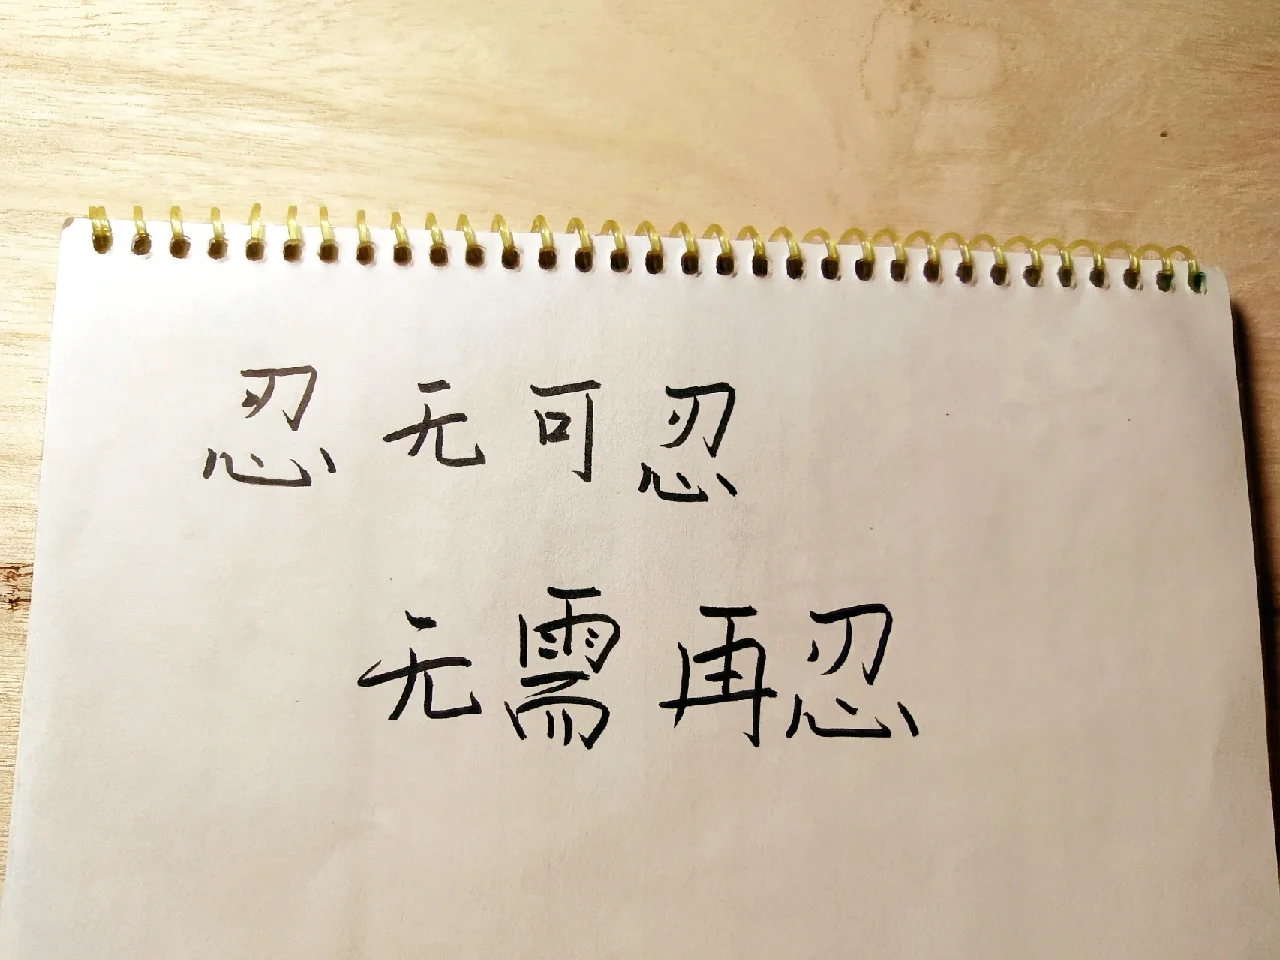 忍无可忍
无需再忍